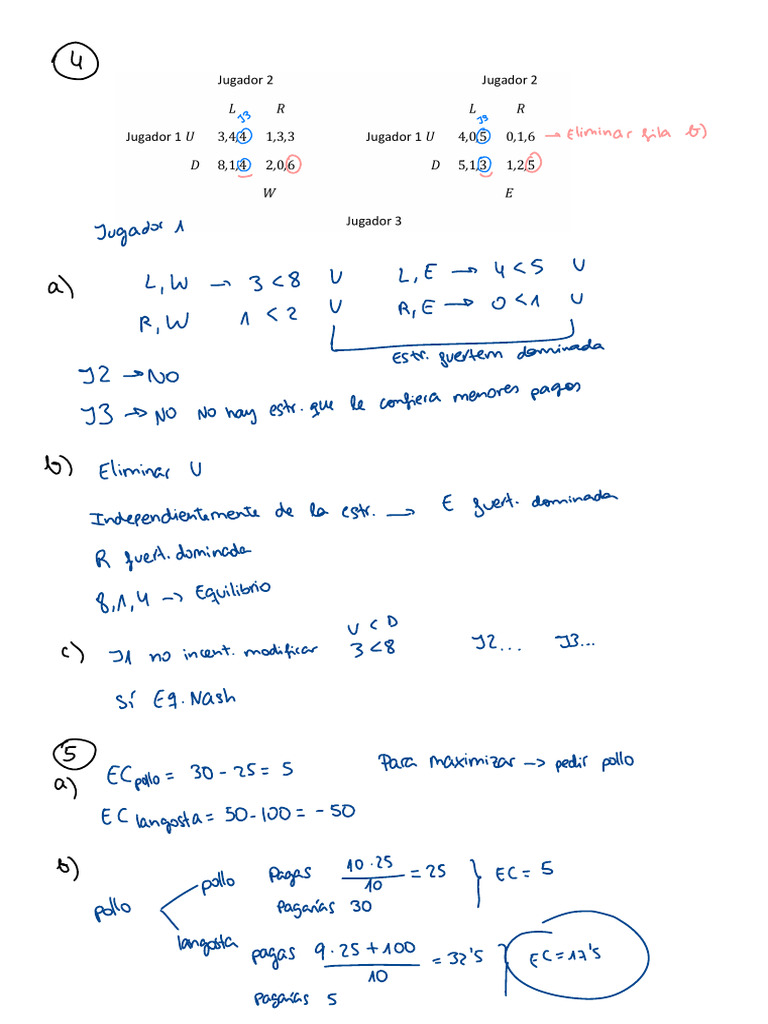 4
Jugador 2 Jugador 2
L R L R
J3 J3
Jugador 1 U 3,4,4 1,3,3 Jugador 1 U 4,0,5 0,1,6 → Eliminar fila b)
D 8,1,4 2,0,6 D 5,1,3 1,2,5
W E
Jugador 3
Jugador 1
a) L, W → 3 < 8 U L, E → 4 < 5 U
R, W 1 < 2 U R, E → 0 < 1 U
Estr. fuertem dominada
J2 → NO
J3 → NO No hay estr. que le confiera menores pagos
b) Eliminar U
Independientemente de la estr. → E fuert. dominada
R fuert. dominada
8,1,4 → Equilibrio
U < D
c) J1 no incent. modificar 3 < 8 J2... J3...
Sí Eq. Nash
5
a) EC pollo = 30 - 25 = 5 Para maximizar → pedir pollo
EC langosta = 50 - 100 = - 50
b) pollo pollo Pagas 10·25/10 = 25 EC = 5
Pagarías 30
langosta pagas 9·25+100/10 = 32'5 EC = 17'5
Pagarías 5